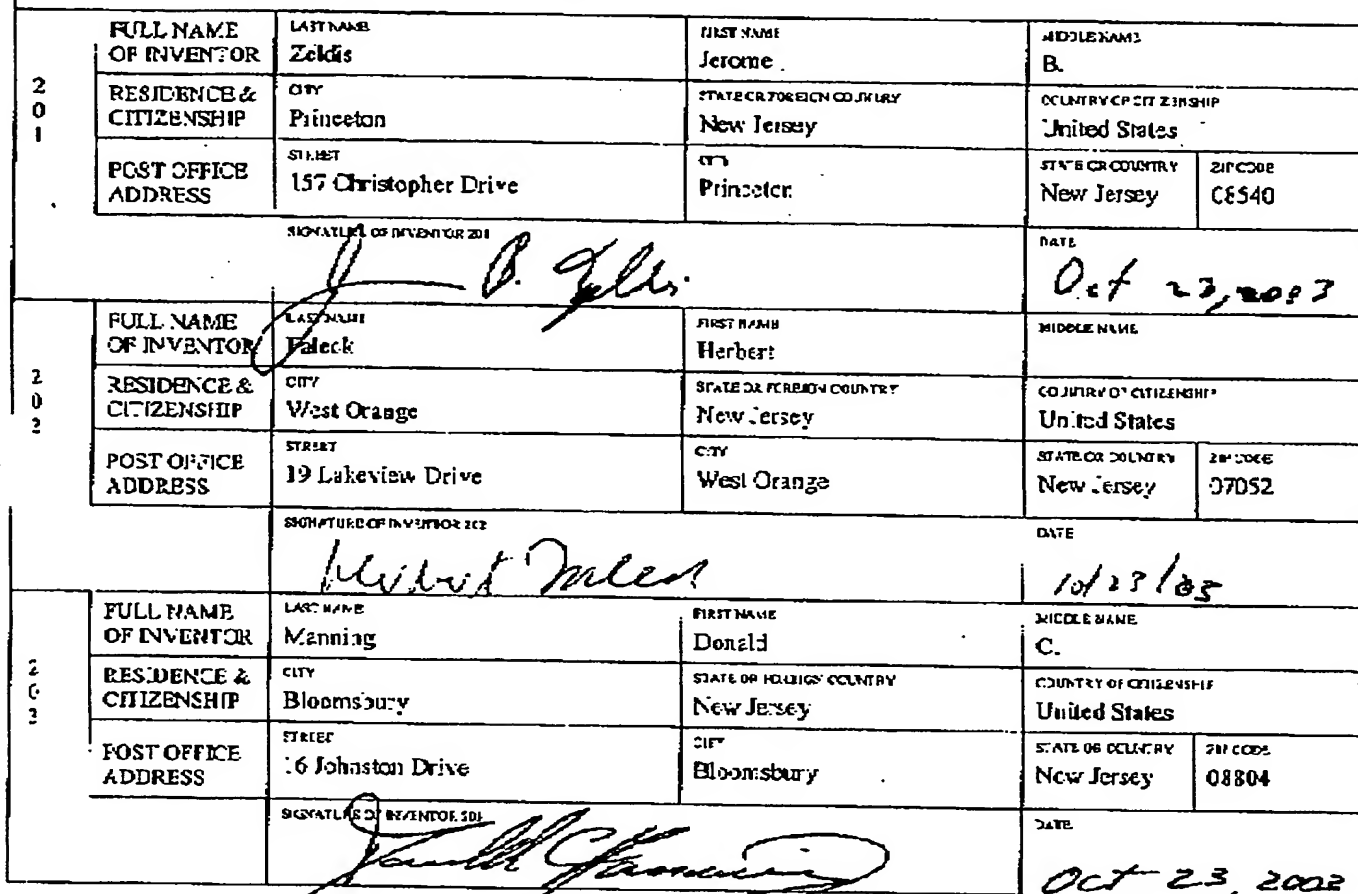 FULL NAME OF INVENTOR LAST NAME Zeldis FIRST NAME Jerome MIDDLE NAME B.
201
RESIDENCE & CITIZENSHIP CITY Princeton STATE OR FOREIGN COUNTRY New Jersey COUNTRY OF CITIZENSHIP United States
POST OFFICE ADDRESS STREET 157 Christopher Drive CITY Princeton STATE OR COUNTRY New Jersey ZIP CODE 08540
SIGNATURE OF INVENTOR 201 J B. Zeldis DATE Oct 23, 2003
FULL NAME OF INVENTOR LAST NAME Faleck FIRST NAME Herbert MIDDLE NAME
202
RESIDENCE & CITIZENSHIP CITY West Orange STATE OR FOREIGN COUNTRY New Jersey COUNTRY OF CITIZENSHIP United States
POST OFFICE ADDRESS STREET 19 Lakeview Drive CITY West Orange STATE OR COUNTRY New Jersey ZIP CODE 07052
SIGNATURE OF INVENTOR 202 Herbert Faleck DATE 10/23/03
FULL NAME OF INVENTOR LAST NAME Manning FIRST NAME Donald MIDDLE NAME C.
203
RESIDENCE & CITIZENSHIP CITY Bloomsbury STATE OR FOREIGN COUNTRY New Jersey COUNTRY OF CITIZENSHIP United States
POST OFFICE ADDRESS STREET 16 Johnston Drive CITY Bloomsbury STATE OR COUNTRY New Jersey ZIP CODE 08804
SIGNATURE OF INVENTOR 203 Donald C Manning DATE Oct 23, 2003